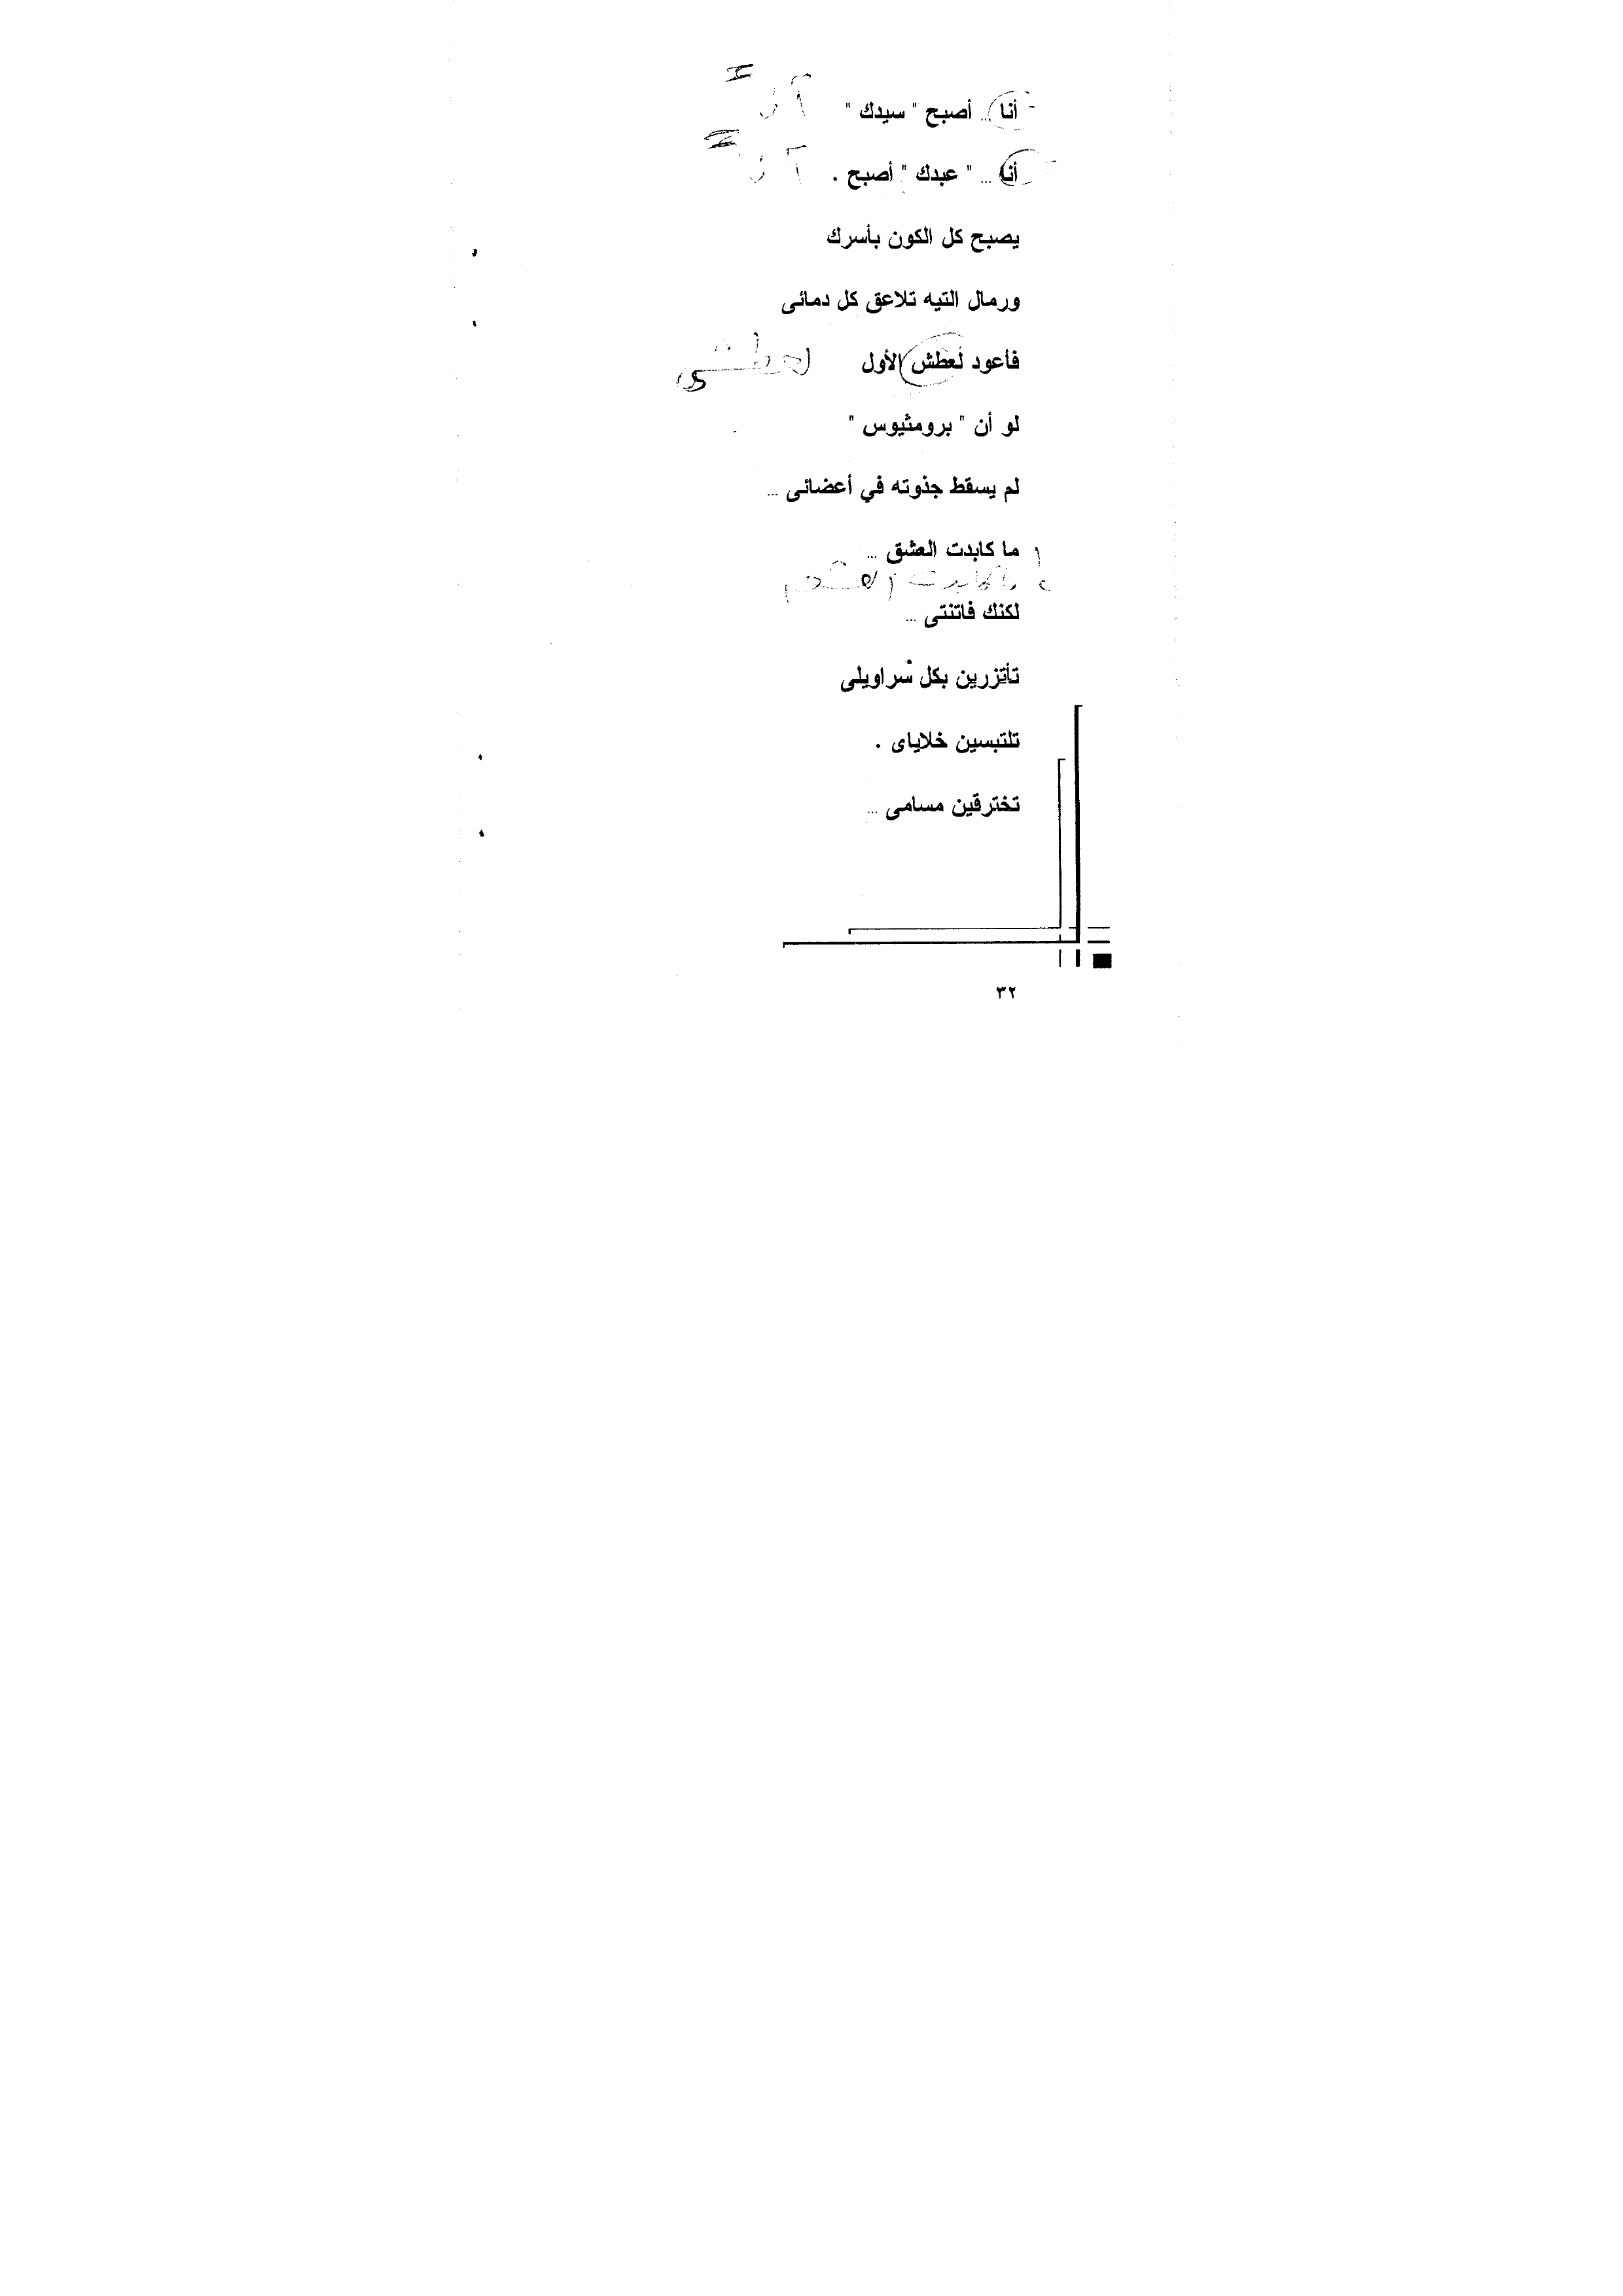 أنا ... أصبح " سيدك "
آن
أنا ... " عبدك " أصبح .
آن
يصبح كل الكون بأسرك
ورمال التيه تلاعق كل دمائى
فأعود لعطش الأول
لعطشى
لو أن " برومثيوس "
لم يسقط جذوته في أعضائى ...
ما كابدت العشق ...
لكنك فاتنتى ...
تأتزرين بكل سراويلى
تلتبسين خلاياى .
تخترقين مسامى ...
٣٢